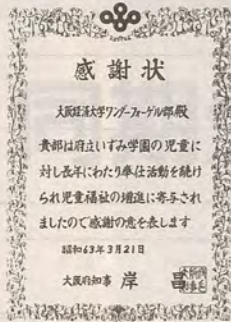 感謝状
大阪経済大学ワンダーフォーゲル部殿
貴部は府立いずみ学園の児童に
対し長年にわたり奉仕活動を続け
られ児童福祉の増進に寄与され
ましたので感謝の意を表します
昭和63年3月21日
大阪府知事 岸 昌